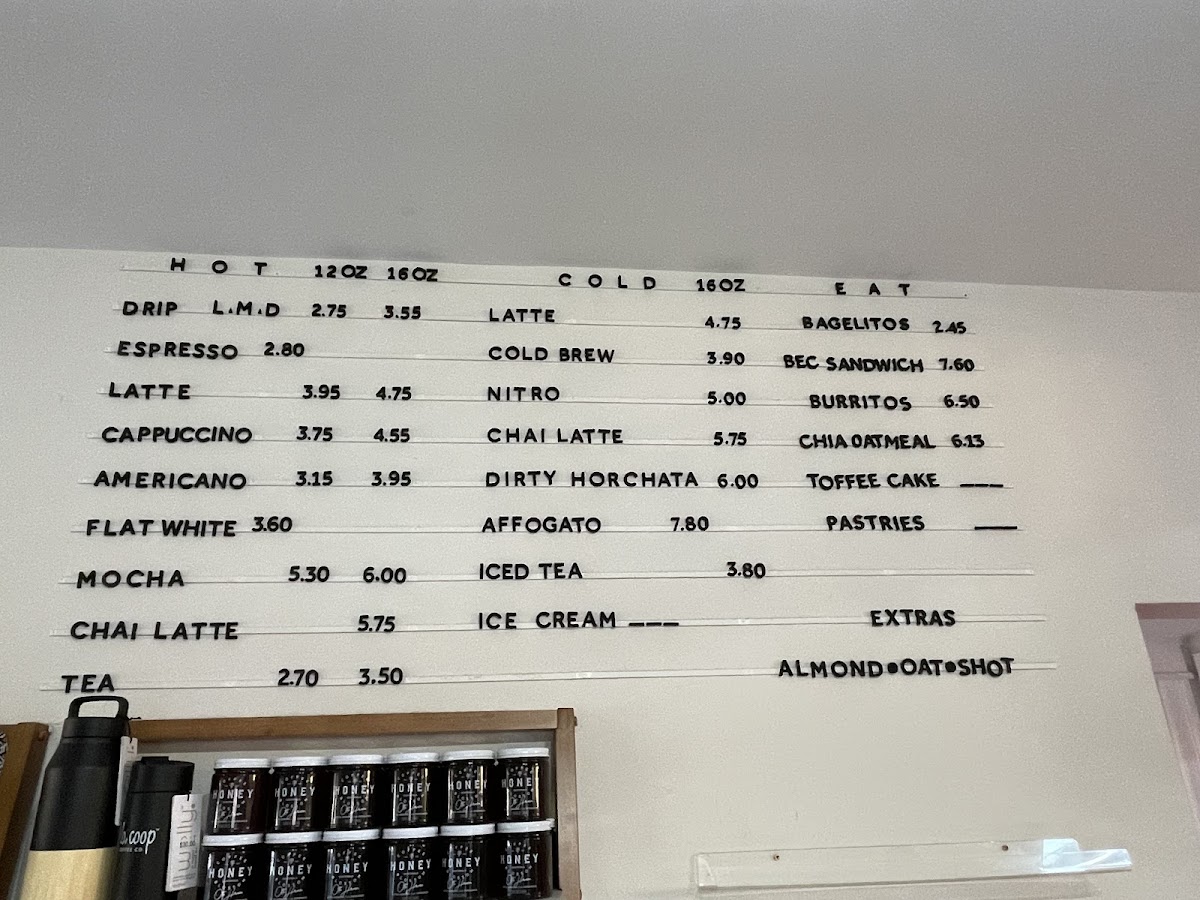 HOT 12OZ 16OZ
DRIP L.M.D 2.75 3.55
ESPRESSO 2.80
LATTE 3.95 4.75
CAPPUCCINO 3.75 4.55
AMERICANO 3.15 3.95
FLAT WHITE 3.60
MOCHA 5.30 6.00
CHAI LATTE 5.75
TEA 2.70 3.50
COLD 16OZ
LATTE 4.75
COLD BREW 3.90
NITRO 5.00
CHAI LATTE 5.75
DIRTY HORCHATA 6.00
AFFOGATO 7.80
ICED TEA 3.80
ICE CREAM ___
EAT
BAGELITOS 2.45
BEC SANDWICH 7.60
BURRITOS 6.50
CHIA OATMEAL 6.13
TOFFEE CAKE ___
PASTRIES ___
EXTRAS
ALMOND•OAT•SHOT
coop
welly
HONEY HONEY HONEY HONEY HONEY HONEY
HONEY HONEY HONEY HONEY HONEY HONEY